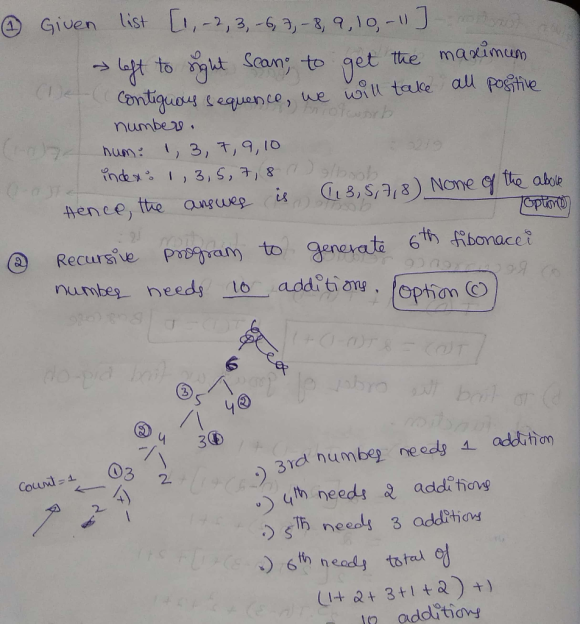 ① Given list [1, -2, 3, -6, 7, -8, 9, 10, -11]
→ left to right scan; to get the maximum
contiguous sequence, we will take all positive
numbers.
num: 1, 3, 7, 9, 10
index: 1, 3, 5, 7, 8
Hence, the answer is (1, 3, 5, 7, 8) None of the above
② Recursive program to generate 6th fibonacci
number needs 10 additions. Option ©
6
③ 5 4 ②
② 4 3 ①
① 3 2
count = 1
2 + 1
.) 3rd number needs 1 addition
.) 4th needs 2 additions
.) 5th needs 3 additions
.) 6th needs total of
(1 + 2 + 3 + 1 + 2) + 1
10 additions